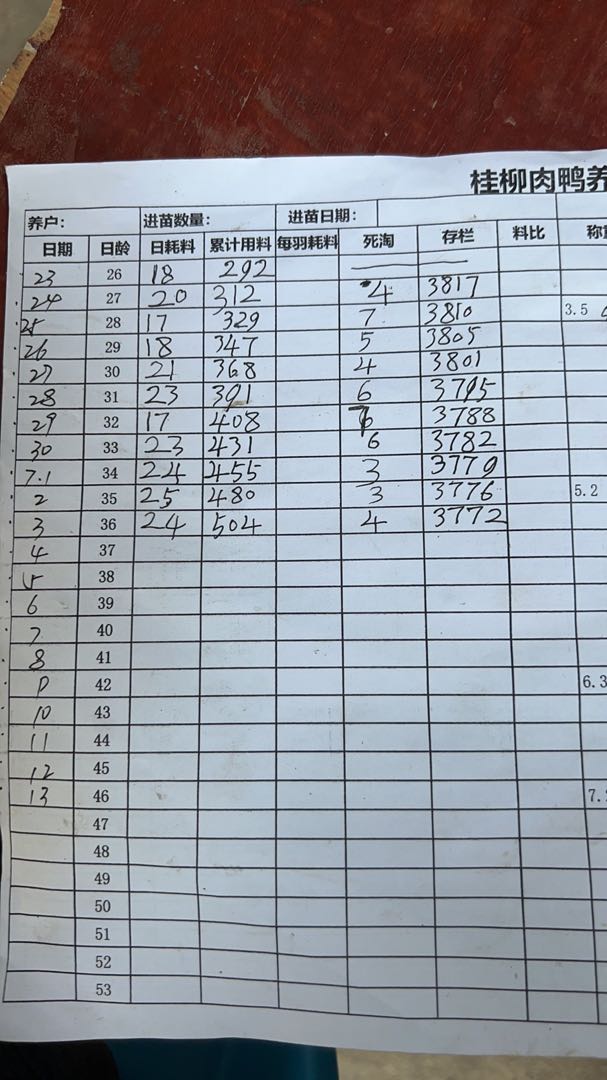 桂柳肉鸭养
养户： 进苗数量： 进苗日期：
日期 日龄 日耗料 累计用料 每羽耗料 死淘 存栏 料比 称
23 26 18 292
24 27 20 312 4 3817
25 28 17 329 7 3810 3.5
26 29 18 347 5 3805
27 30 21 368 4 3801
28 31 23 391 6 3795
29 32 17 408 3788
30 33 23 431 6 3782
7.1 34 24 455 3 3779
2 35 25 480 3 3776 5.2
3 36 24 504 4 3772
4 37
5 38
6 39
7 40
8 41
9 42 6.3
10 43
11 44
12 45
13 46 7.
47
48
49
50
51
52
53